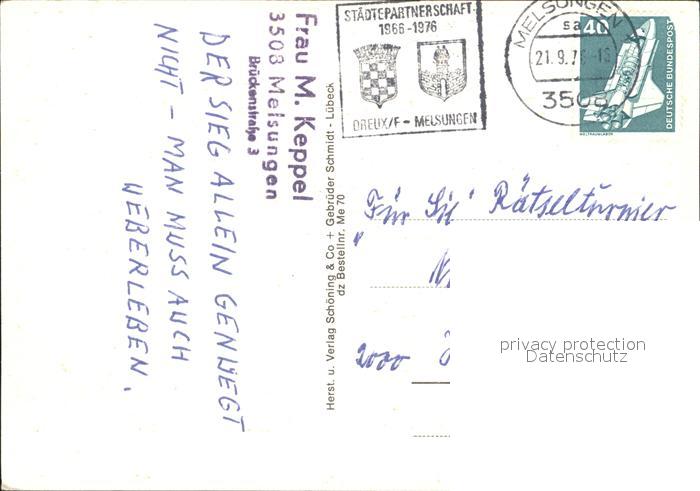 STÄDTEPARTNERSCHAFT
1966-1976
DREUX/F - MELSUNGEN
MELSUNGEN 1
sa
21.9.7
3508
40
DEUTSCHE BUNDESPOST
WELTRAUMLABOR
Frau M. Keppel
3508 Melsungen
Brückenstraße 3
DER SIEG ALLEIN GENUEGT
NICHT - MAN MUSS AUCH
UEBERLEBEN.
Herst. u. Verlag Schöning & Co + Gebrüder Schmidt - Lübeck
dz Bestellnr. Me 70
"Für Sie" Rätselturnier
2000
privacy protection
Datenschutz